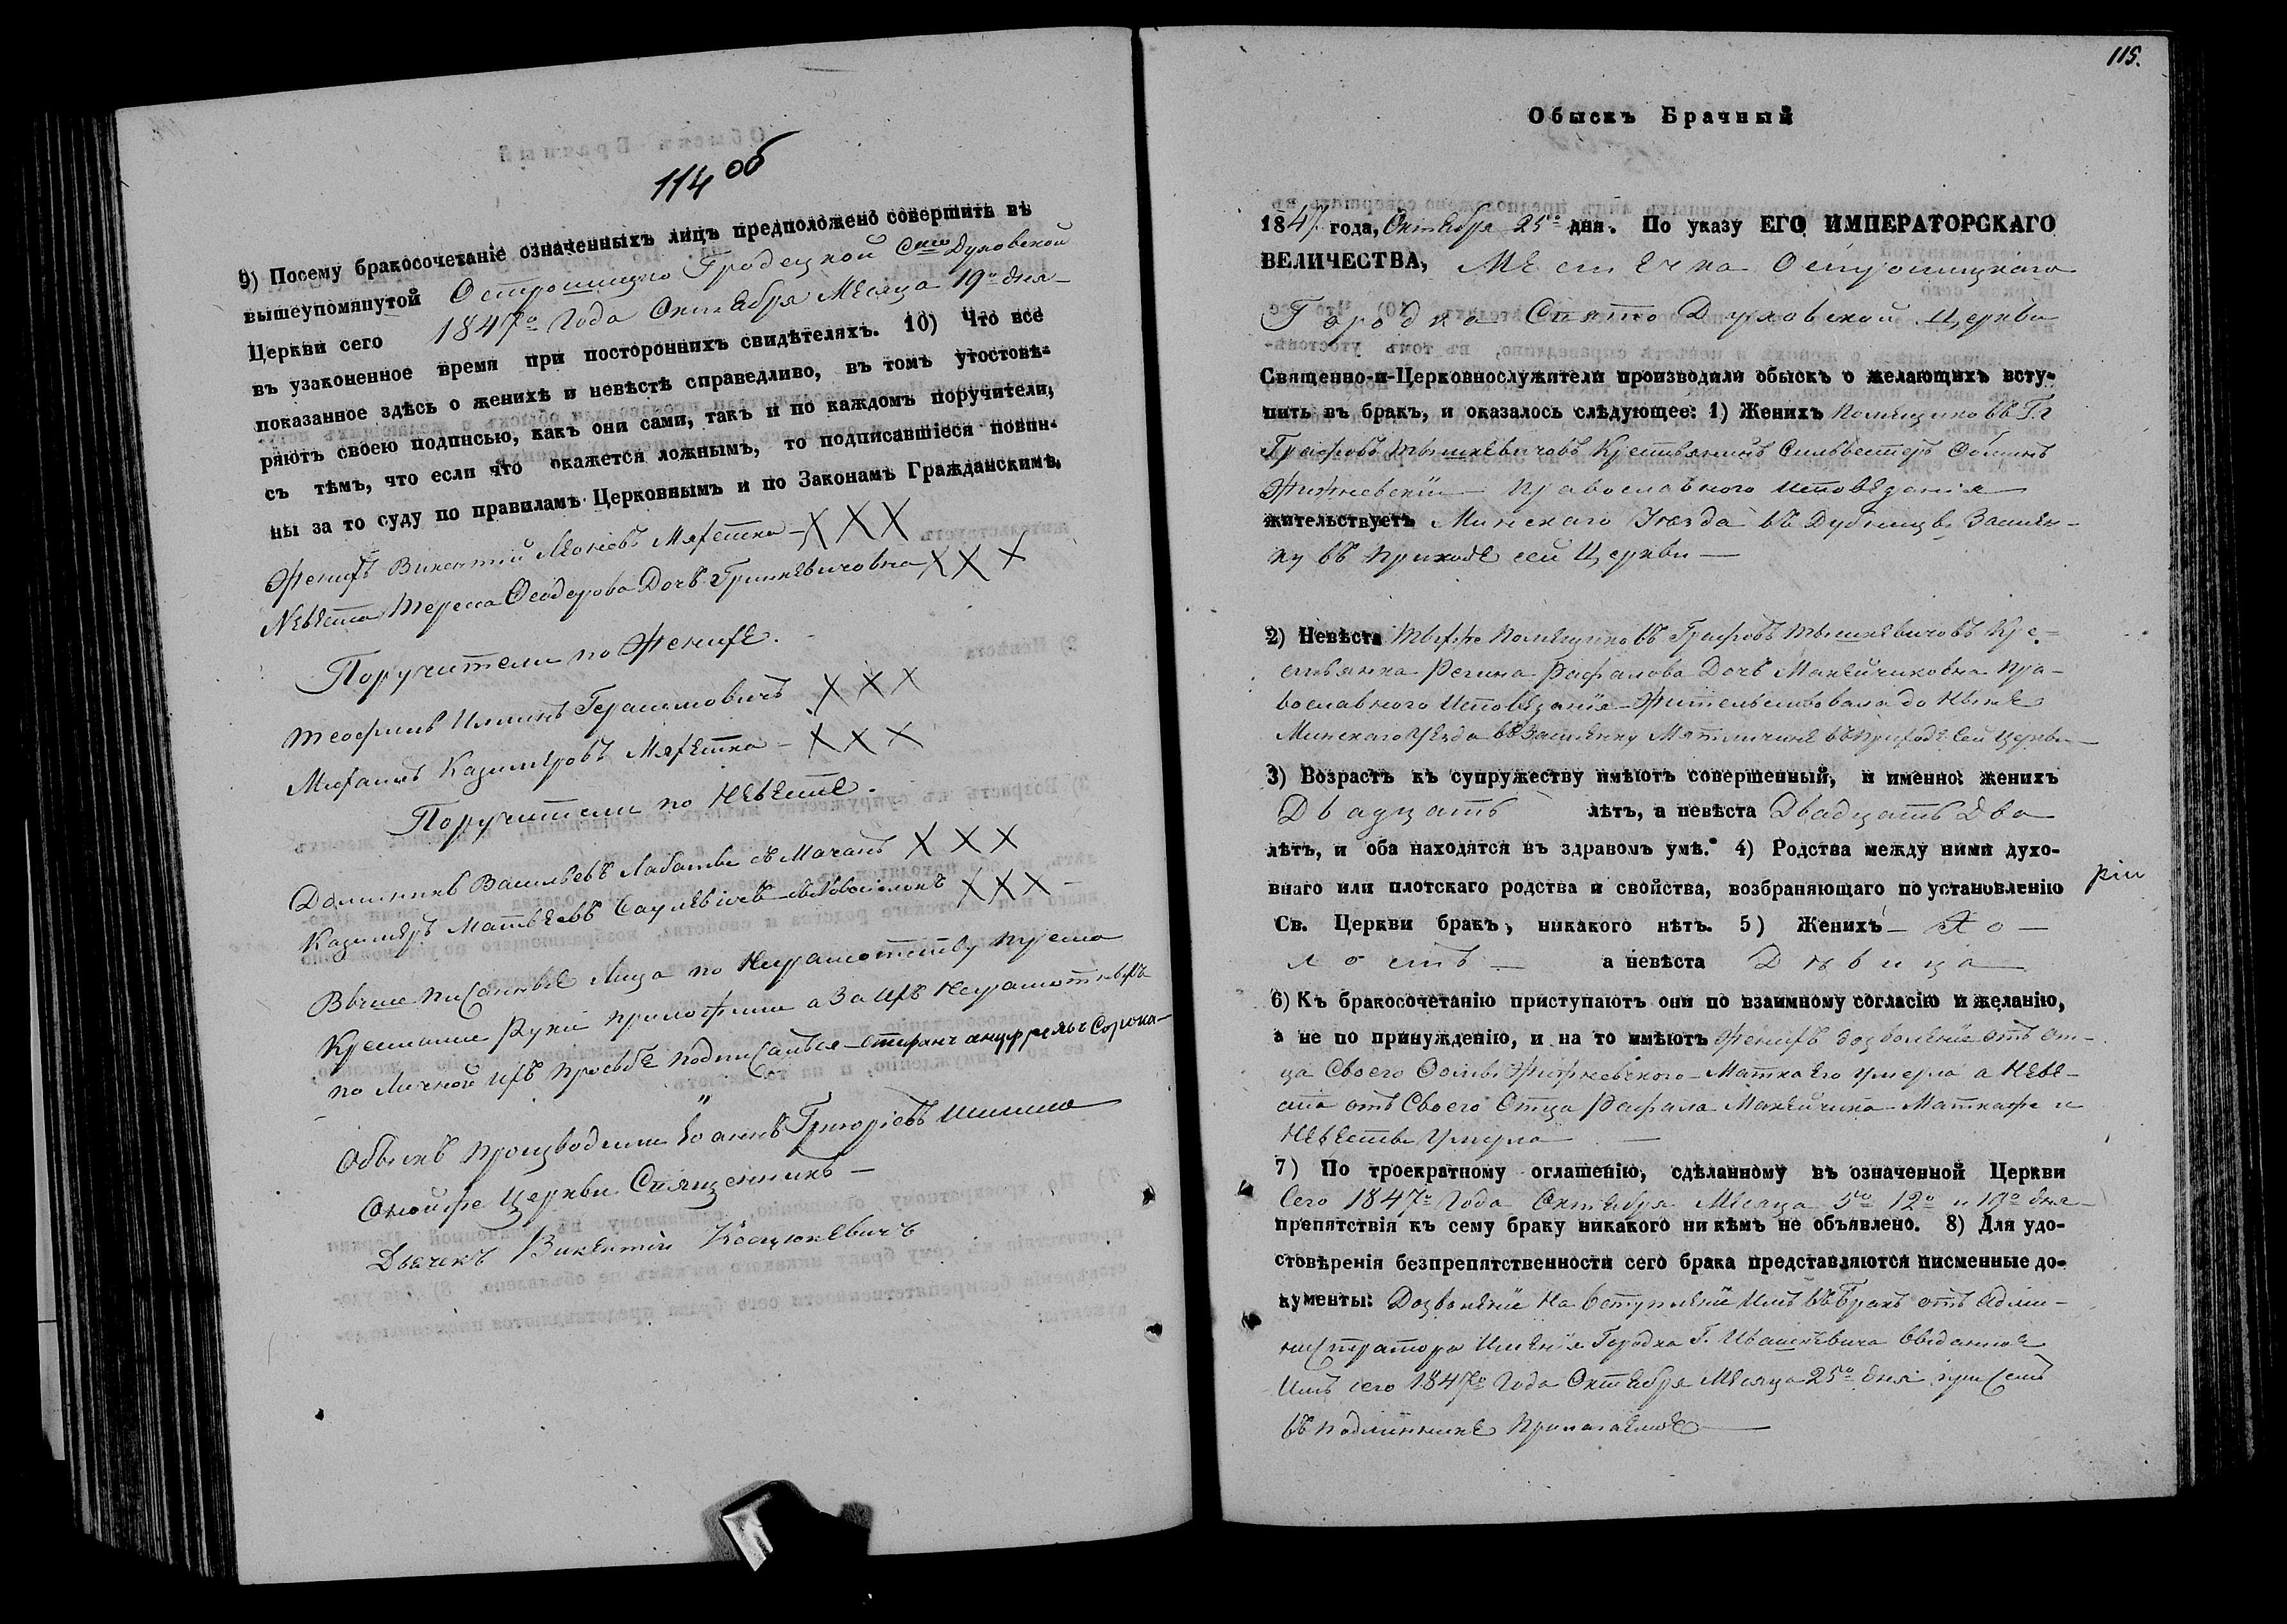 114 об
9) Посему бракосочетаніе означенныхъ лицъ предположено совершить въ
вышеупомянутой Острошицко Гродецкой Свято Духовской
Церкви сего 1847го Года Октебря Месяца 19го дня
въ узаконенное время при посторонныхъ свидѣтеляхъ. 10) Что все
показанное здѣсь о женихѣ и невѣстѣ справедливо, въ томъ утостовѣ-
ряютъ своею подписью, какъ они сами, такъ и по каждомъ поручители,
съ тѣмъ, что если что окажется ложнымъ, то подписавшіеся повин-
ны за то суду по правиламъ Церковнымъ и по Законамъ Гражданскимъ.
Женихъ Викентій Мяхетка XXX
Невеста Тереса Феодорова Дочь Гринкевичовна XXX
Поручители по Женихе.
Теофилъ Илинъ Герасимовичъ XXX
Казимеровъ Мяхетка XXX
Поручители по Невесте.
Доминикъ Васильевъ XXX
Казимеръ Матвеевъ XXX
Выше писанные Лица по Неграмотству Кресто
Руки приложили а За ихъ Неграмотныхъ
по Личной ихъ просьбе подписалъся Сорока
Обыскъ производили Іоаннъ Григоріевъ
Онойже Церкви Священникъ
Дьячекъ Викентій Косцюкевичъ
115.
Обыскъ Брачный
1847 года, Октебря 25го дня. По указу ЕГО ИМПЕРАТОРСКАГО
ВЕЛИЧЕСТВА, Местечка Острошицкаго
Городка Свято Духовской Церкви
Священно-и-Церковнослужители производили обыскъ о желающихъ всту-
пить въ бракъ, и оказалось слѣдующее: 1) Женихъ Помещиковъ Г.г
Графовъ Тышкевичовъ Крестьянинъ Сильвестеръ Фоминъ
Жижневскій Православного Исповеданія
жительствуетъ Минскаго Уезда въ Застен-
ку въ приходе сей Церкви
2) Невѣста Техже Помещиковъ Графовъ Тышкевичовъ Кре-
стьянка Регина Рафалова Дочь Макейчиковна Пра-
вославного Исповеданія Жительствовала до Ныне
Минскаго Уезда въ Застенку въ приходе Сей Церкви
3) Возрастъ къ супружеству имѣютъ совершенный, и именно: женихъ
Двадцать лѣтъ, а невѣста Двадцать Два
лѣтъ, и оба находятся въ здравомъ умѣ. 4) Родства между ними духо-
внаго или плотскаго родства и свойства, возбраняющаго по установленію
Св. Церкви бракъ, никакого нѣтъ. 5) Женихъ Хо-
лостъ а невѣста Девица
6) Къ бракосочетанію приступаютъ они по взаимному согласію и желанію,
а не по принужденію, и на то имѣютъ Женихъ дозволеніе отъ От-
ца Своего Фомы Жижневского Матка Его умерла а Неве-
ста отъ Своего Отца Рафала Макейчика Маткаже и
Невесты Умерла
7) По троекратному оглашенію, сдѣланному въ означенной Церкви
Сего 1847го Года Октебря Месяца 5го 12го и 19го дня
препятствія къ сему браку никакого ни кѣмъ не объявлено. 8) Для удо-
стовѣренія безпрепятственности сего брака представляются писменные до-
кументы: Дозволеніе На Вступленіе Имъ въ Бракъ отъ Адми-
нистратора Именія Городка Г. Ивашкевича Выданное
Имъ сего 1847го Года Октебря Месяца 25го дня при семъ
въ подлиннике Прилагаемое